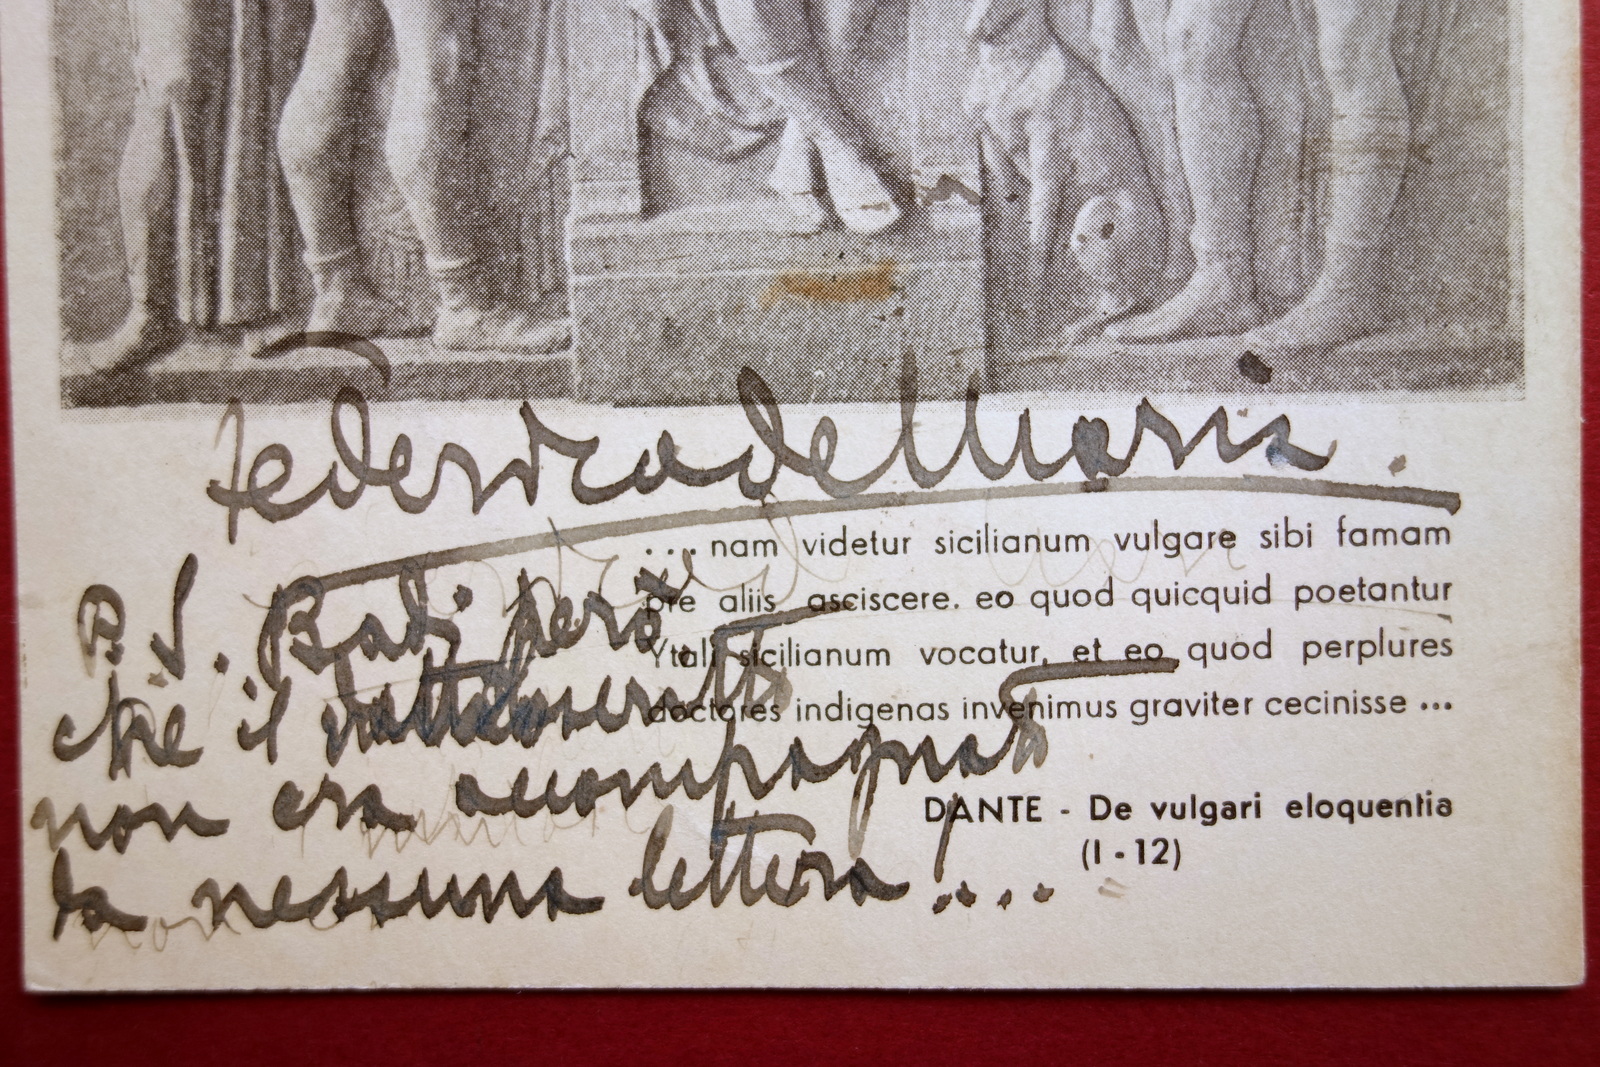 Federico de Maria.
... nam videtur sicilianum vulgare sibi famam
pre aliis asciscere. eo quod quicquid poetantur
Ytali sicilianum vocatur, et eo quod perplures
doctores indigenas invenimus graviter cecinisse ...
DANTE - De vulgari eloquentia
(I - 12)
P. S. Badi però
che il
non era accompagnato
da nessuna lettera ....